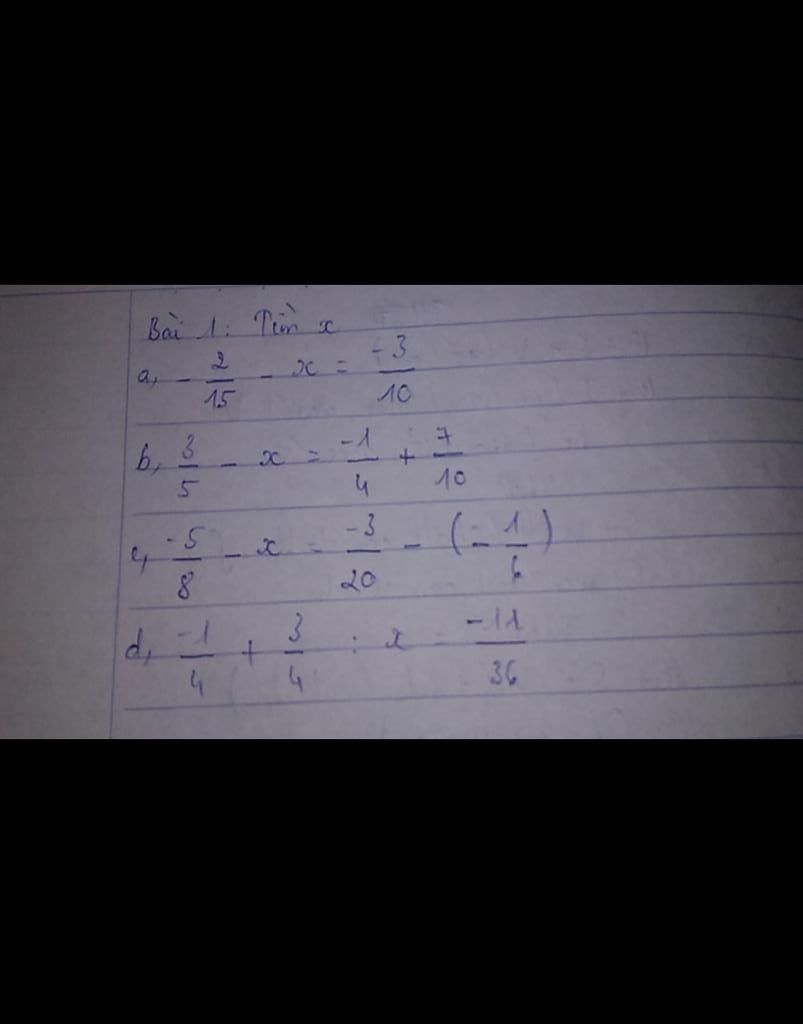 Bài 1: Tìm x
a, - 2/15 - x = -3/10
b, 3/5 - x = -1/4 + 7/10
c, -5/8 - x = -3/20 - (- 1/6)
d, -1/4 + 3/4 : x = -11/36